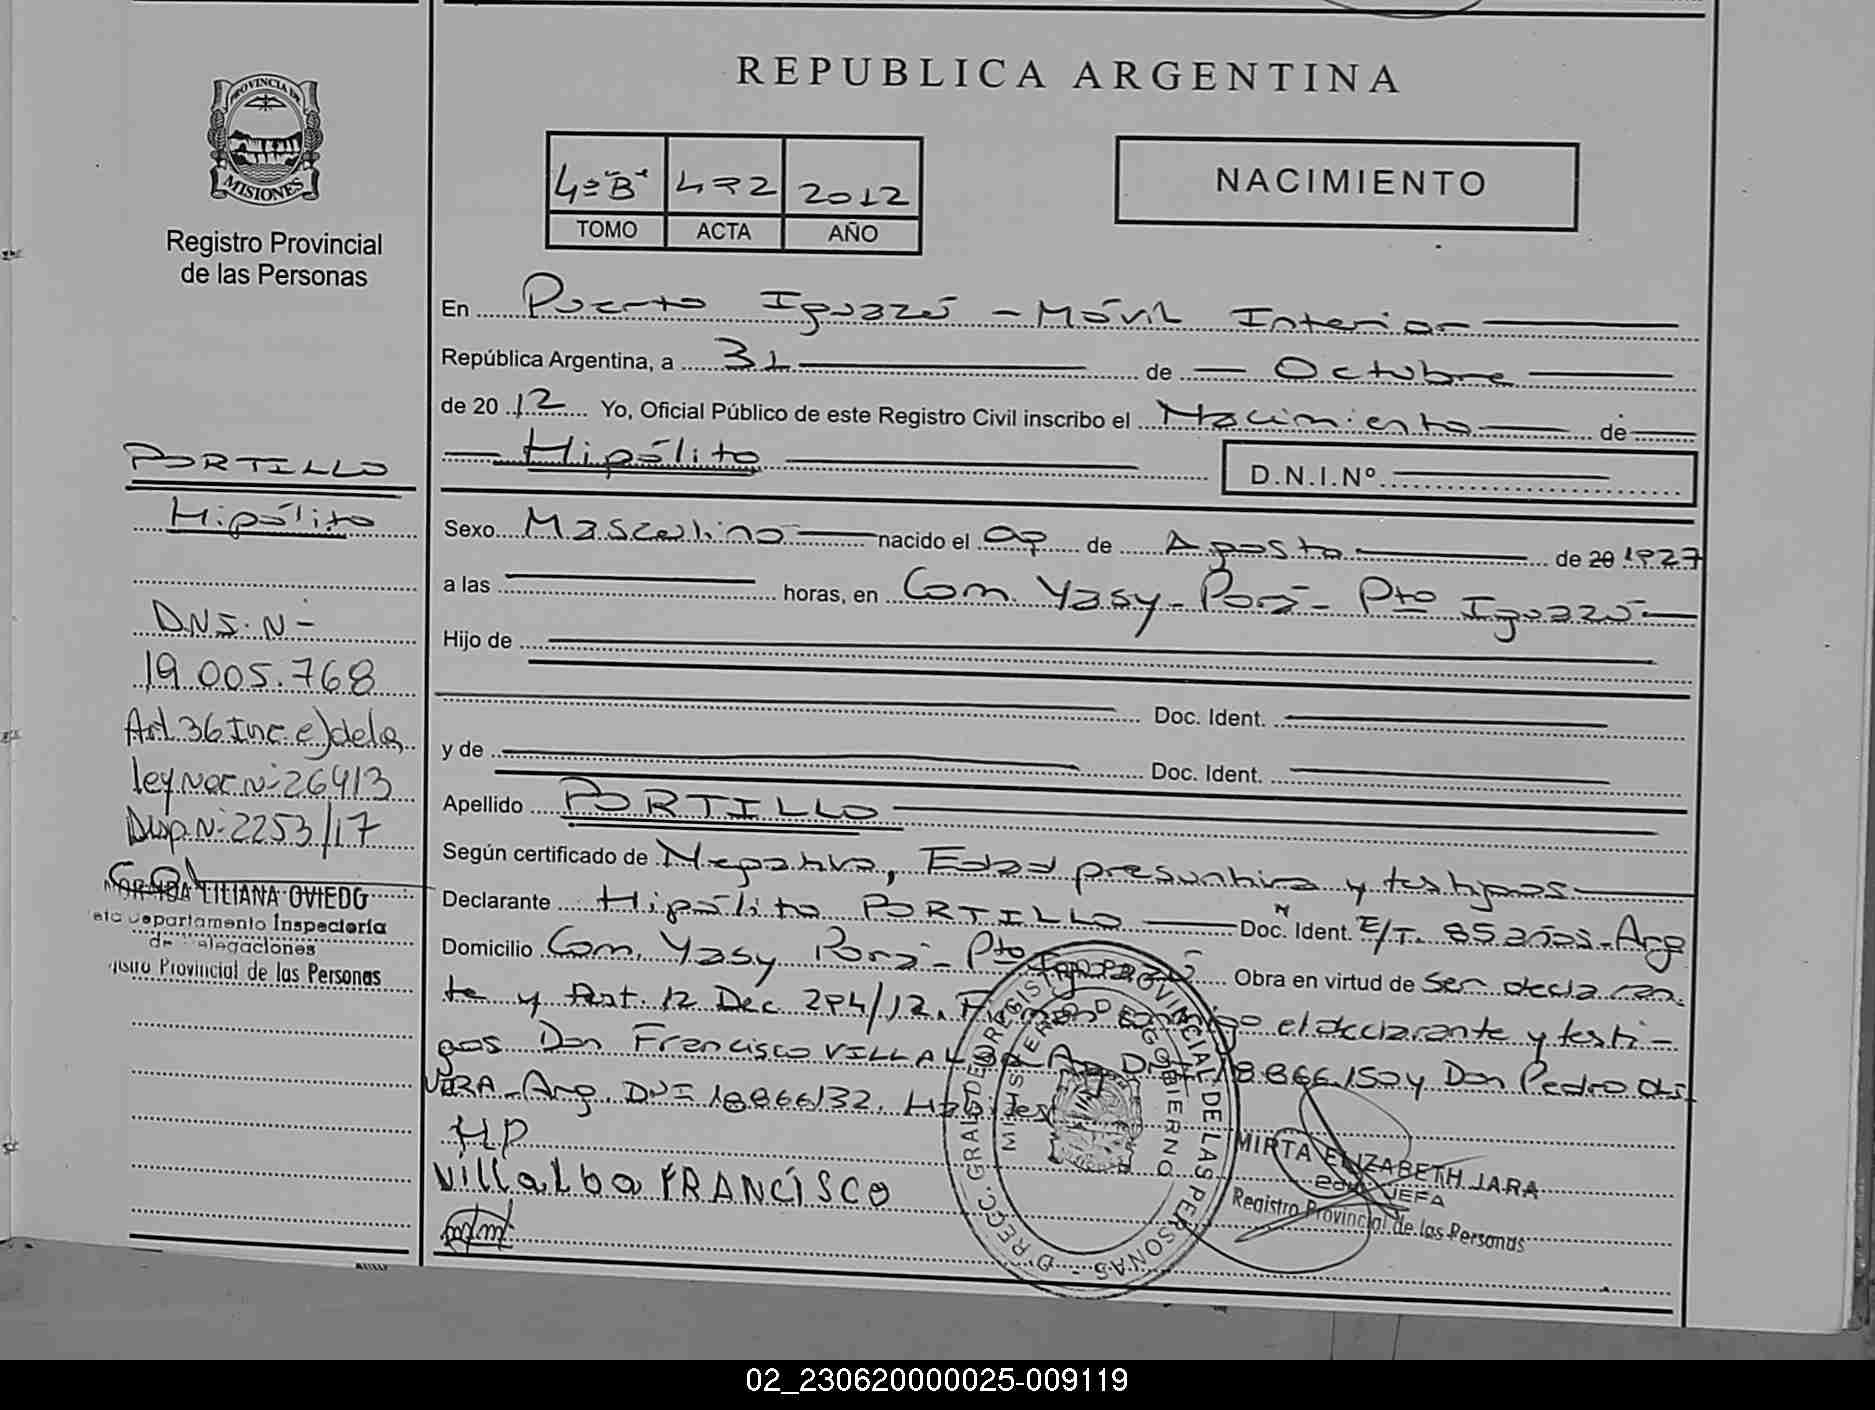 PROVINCIA DE
MISIONES
Registro Provincial
de las Personas
PORTILLO
Hipólito
DNI. Nº
19.005.768
Art. 36 Inc. e) de la
ley Nac. Nº 26413
Disp. Nº 2253/17
LILIANA OVIEDO
Departamento Inspectoría
de Delegaciones
Provincial de las Personas
REPUBLICA ARGENTINA
4º "B" 492 2012
TOMO ACTA AÑO
NACIMIENTO
En Puerto Iguazú - Móvil Interior
República Argentina, a 31 de Octubre
de 2012 Yo, Oficial Público de este Registro Civil inscribo el Nacimiento de
Hipólito D.N.I.Nº
Sexo Masculino nacido el 09 de Agosto de 20 1927
a las horas, en Com. Yasy-Porá- Pto Iguazú
Hijo de
Doc. Ident.
y de Doc. Ident.
Apellido PORTILLO
Según certificado de Negativa, Edad presuntiva y testigos
Declarante Hipólito PORTILLO Doc. Ident. E/T. 85 años-Arg
Domicilio Com. Yasy Porá - Pto Iguazú Obra en virtud de ser declaran
te y Art. 12 Dec. 294/12. el declarante y testi-
gos Don Francisco VILLALBA Arg DNI 18.866.150 y Don Pedro
VERA-Arg. DNI 18866132. Hábiles
HP
Villalba FRANCISCO
MIRTA ELIZABETH JARA
JEFA
Registro Provincial de las Personas
DIRECC. GRAL. DE REGISTRO PROVINCIAL DE LAS PERSONAS
MINISTERIO DE GOBIERNO
02_230620000025-009119